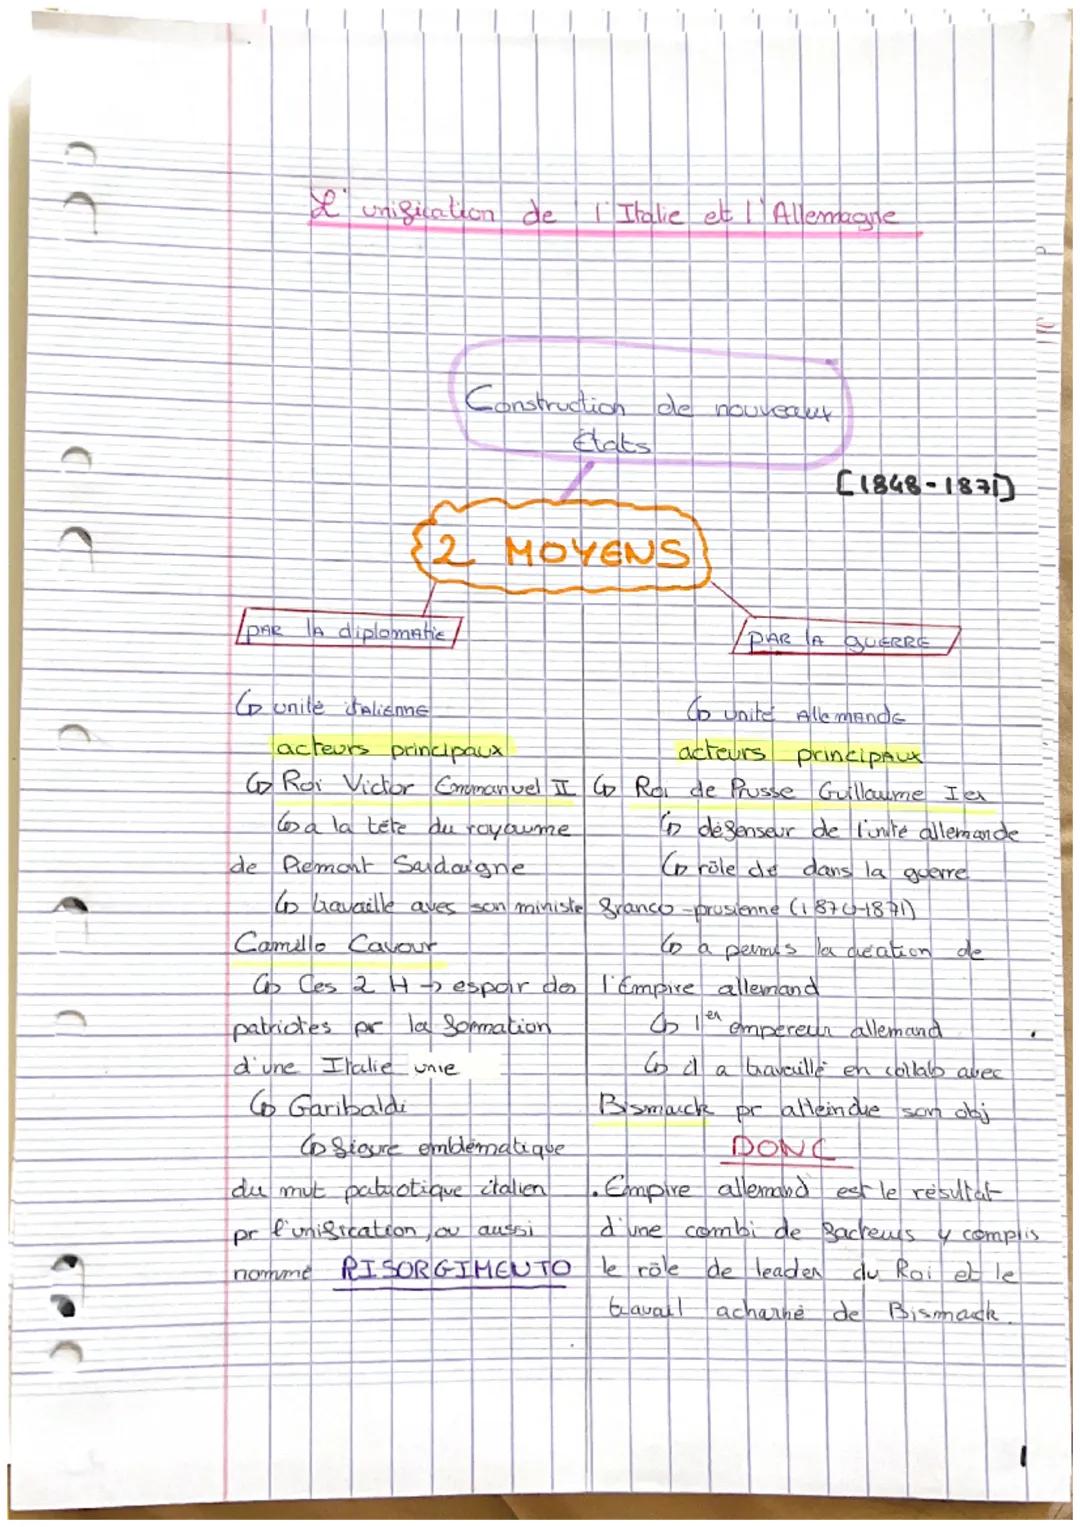 L'unification de l'Italie et l'Allemagne
Construction de nouveaux
États
[1848-1871]
2 MOYENS
PAR LA diplomatie
PAR LA GUERRE
↳ unité italienne
acteurs principaux
↳ Roi Victor Emmanuel II
↳ a la tête du royaume
de Piémont Sardaigne
↳ travaille aves son ministe
Camillo Cavour
↳ Ces 2 H → espoir des
patriotes pr la formation
d'une Italie unie
↳ Garibaldi
↳ figure emblématique
du mvt patriotique italien
pr l'unification, ou aussi
nommé RISORGIMENTO
↳ unité Allemande
acteurs principaux
↳ Roi de Prusse Guillaume Ier
↳ défenseur de l'inité allemande
↳ rôle clé dans la guerre
franco-prusienne (1870-1871)
↳ a permis la création de
l'Empire allemand
↳ 1er empereur allemand
↳ il a travaillé en collab avec
Bismarck pr atteindre son obj
DONC
. Empire allemand est le résultat
d'une combi de facteurs y compris
le rôle de leader du Roi et le
travail acharné de Bismarck.
1